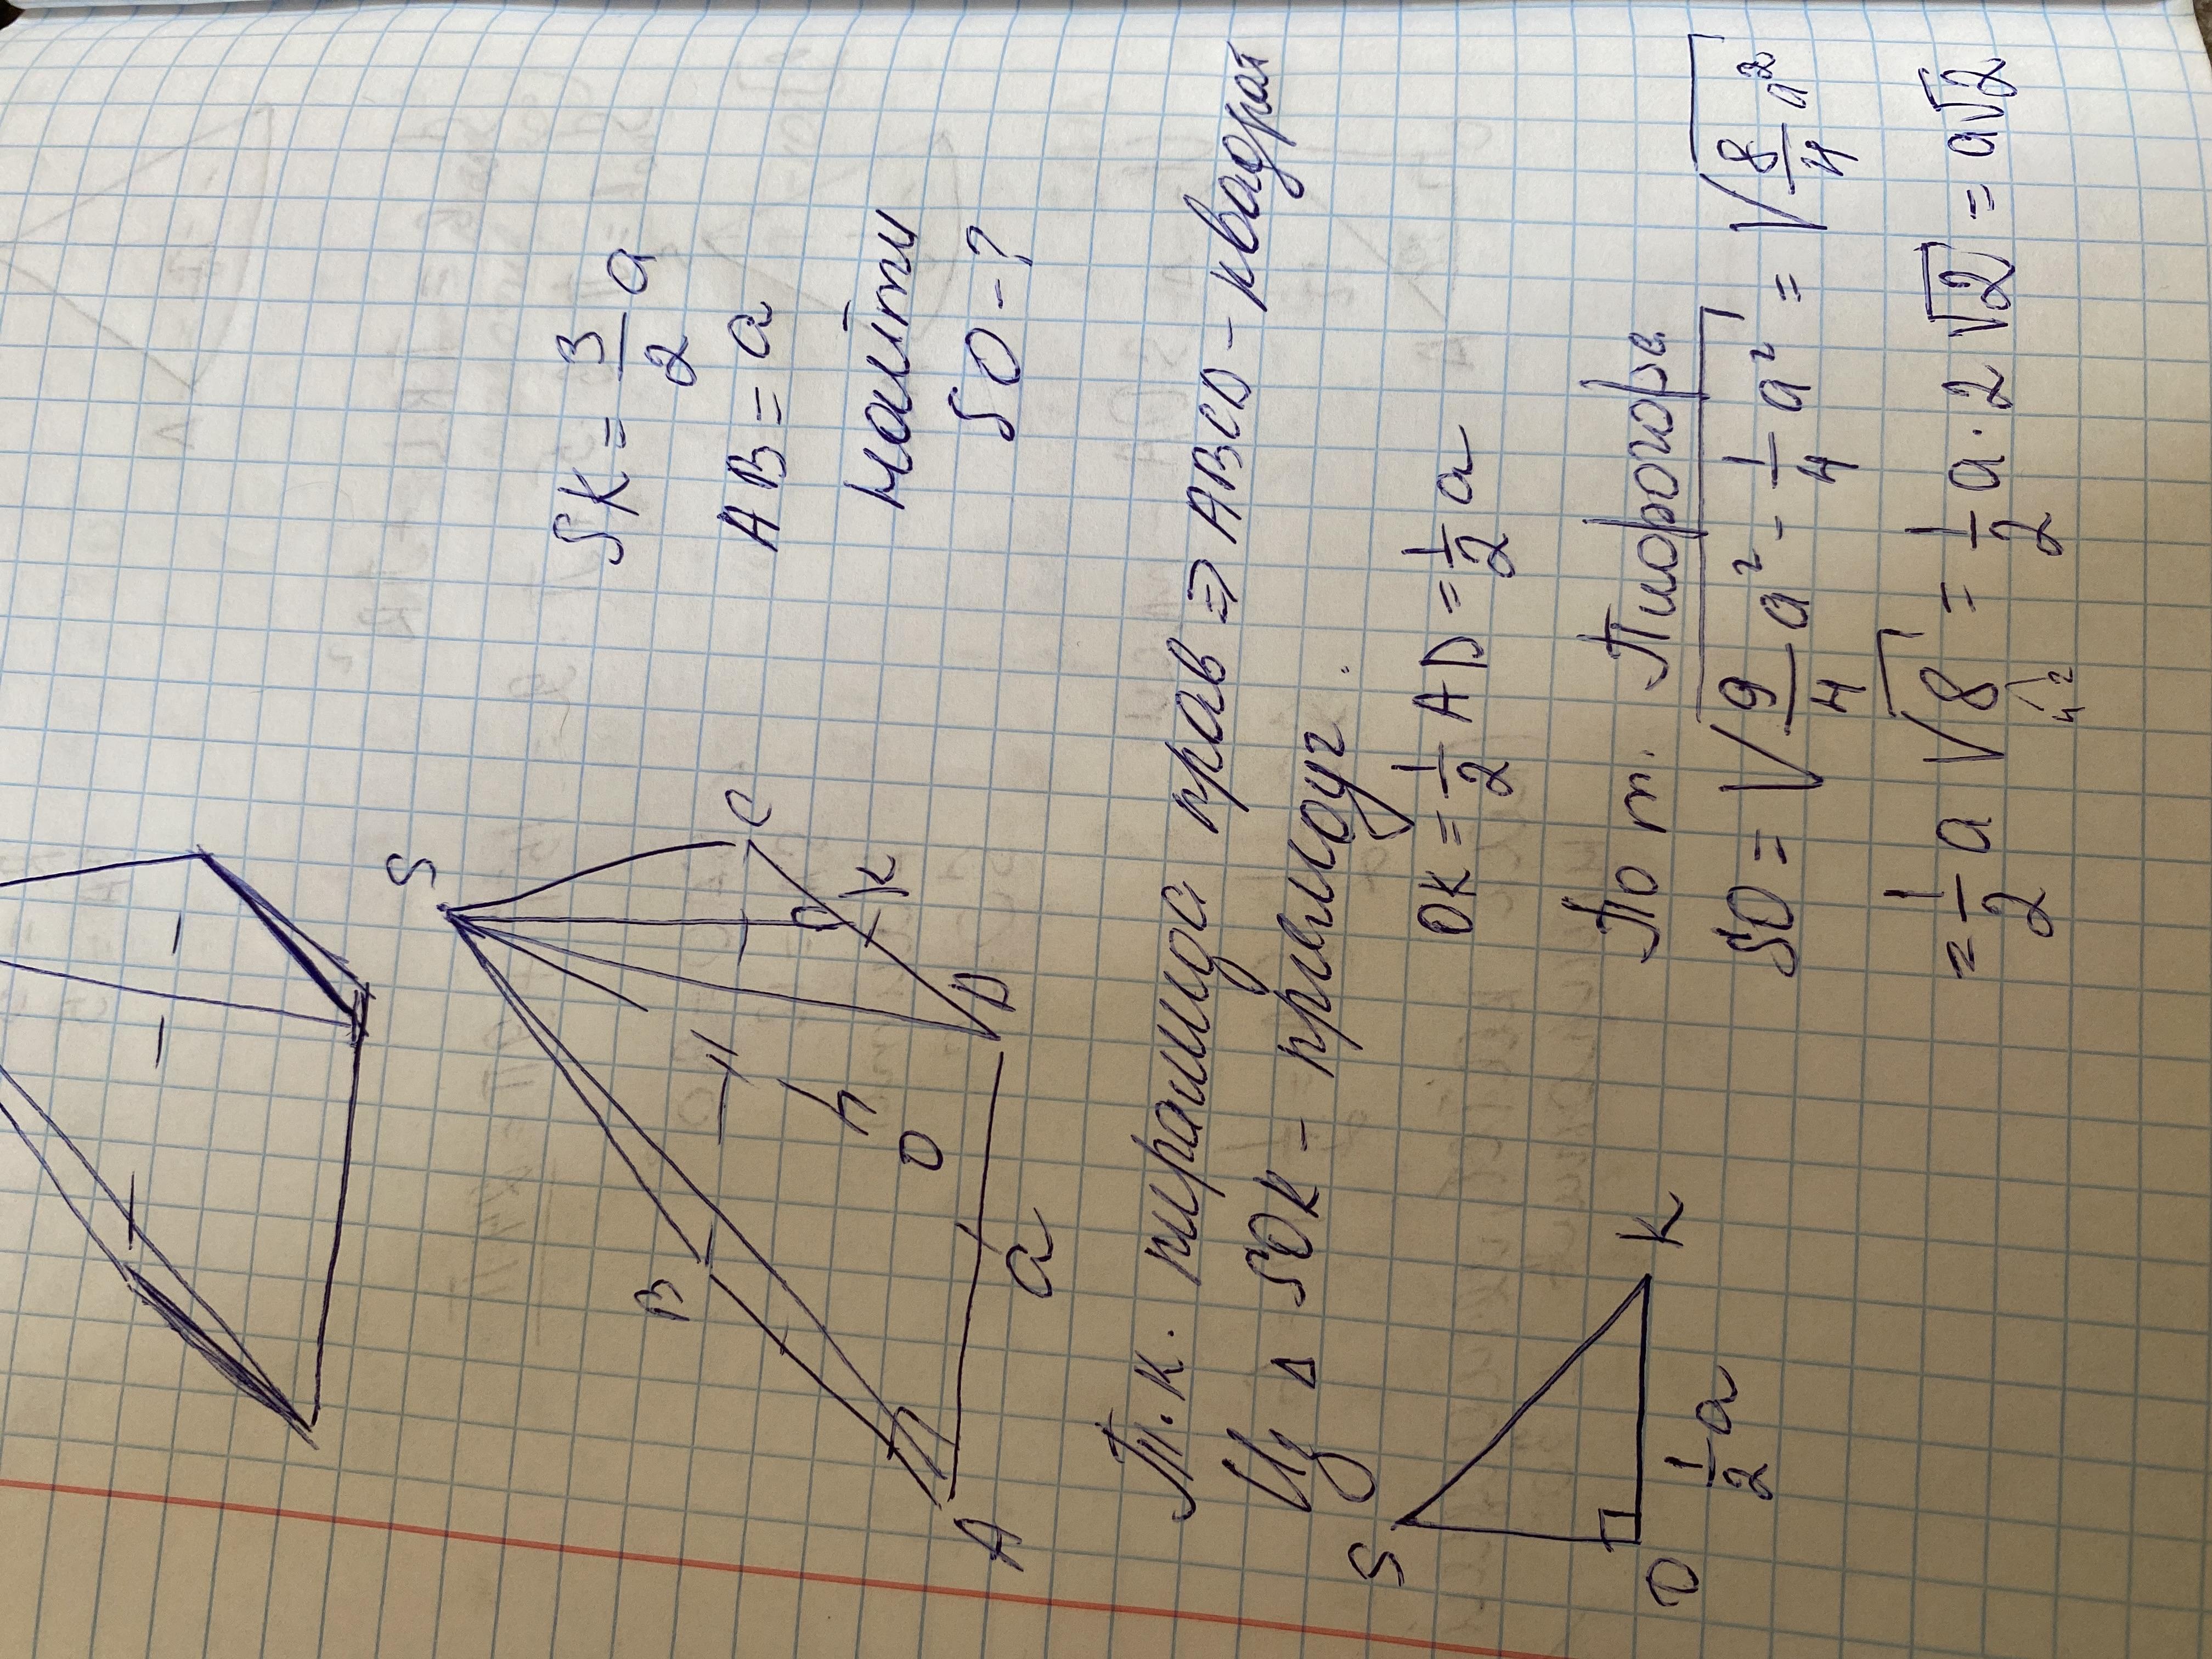 S
B
C
K
H
h
O
D
A
a
SK = 3/2 a
AB = a
Найти
SO - ?
Т.к. пирамида прав ⇒ ABCD - квадрат
Из Δ SOK - прямоуг.
S
O
K
1/2 a
OK = 1/2 AD = 1/2 a
По т. Пифагора
SO = √(9/4 a² - 1/4 a²) = √(8/4 a²)
= 1/2 a √8 = 1/2 a · 2√2 = a√2
4 2